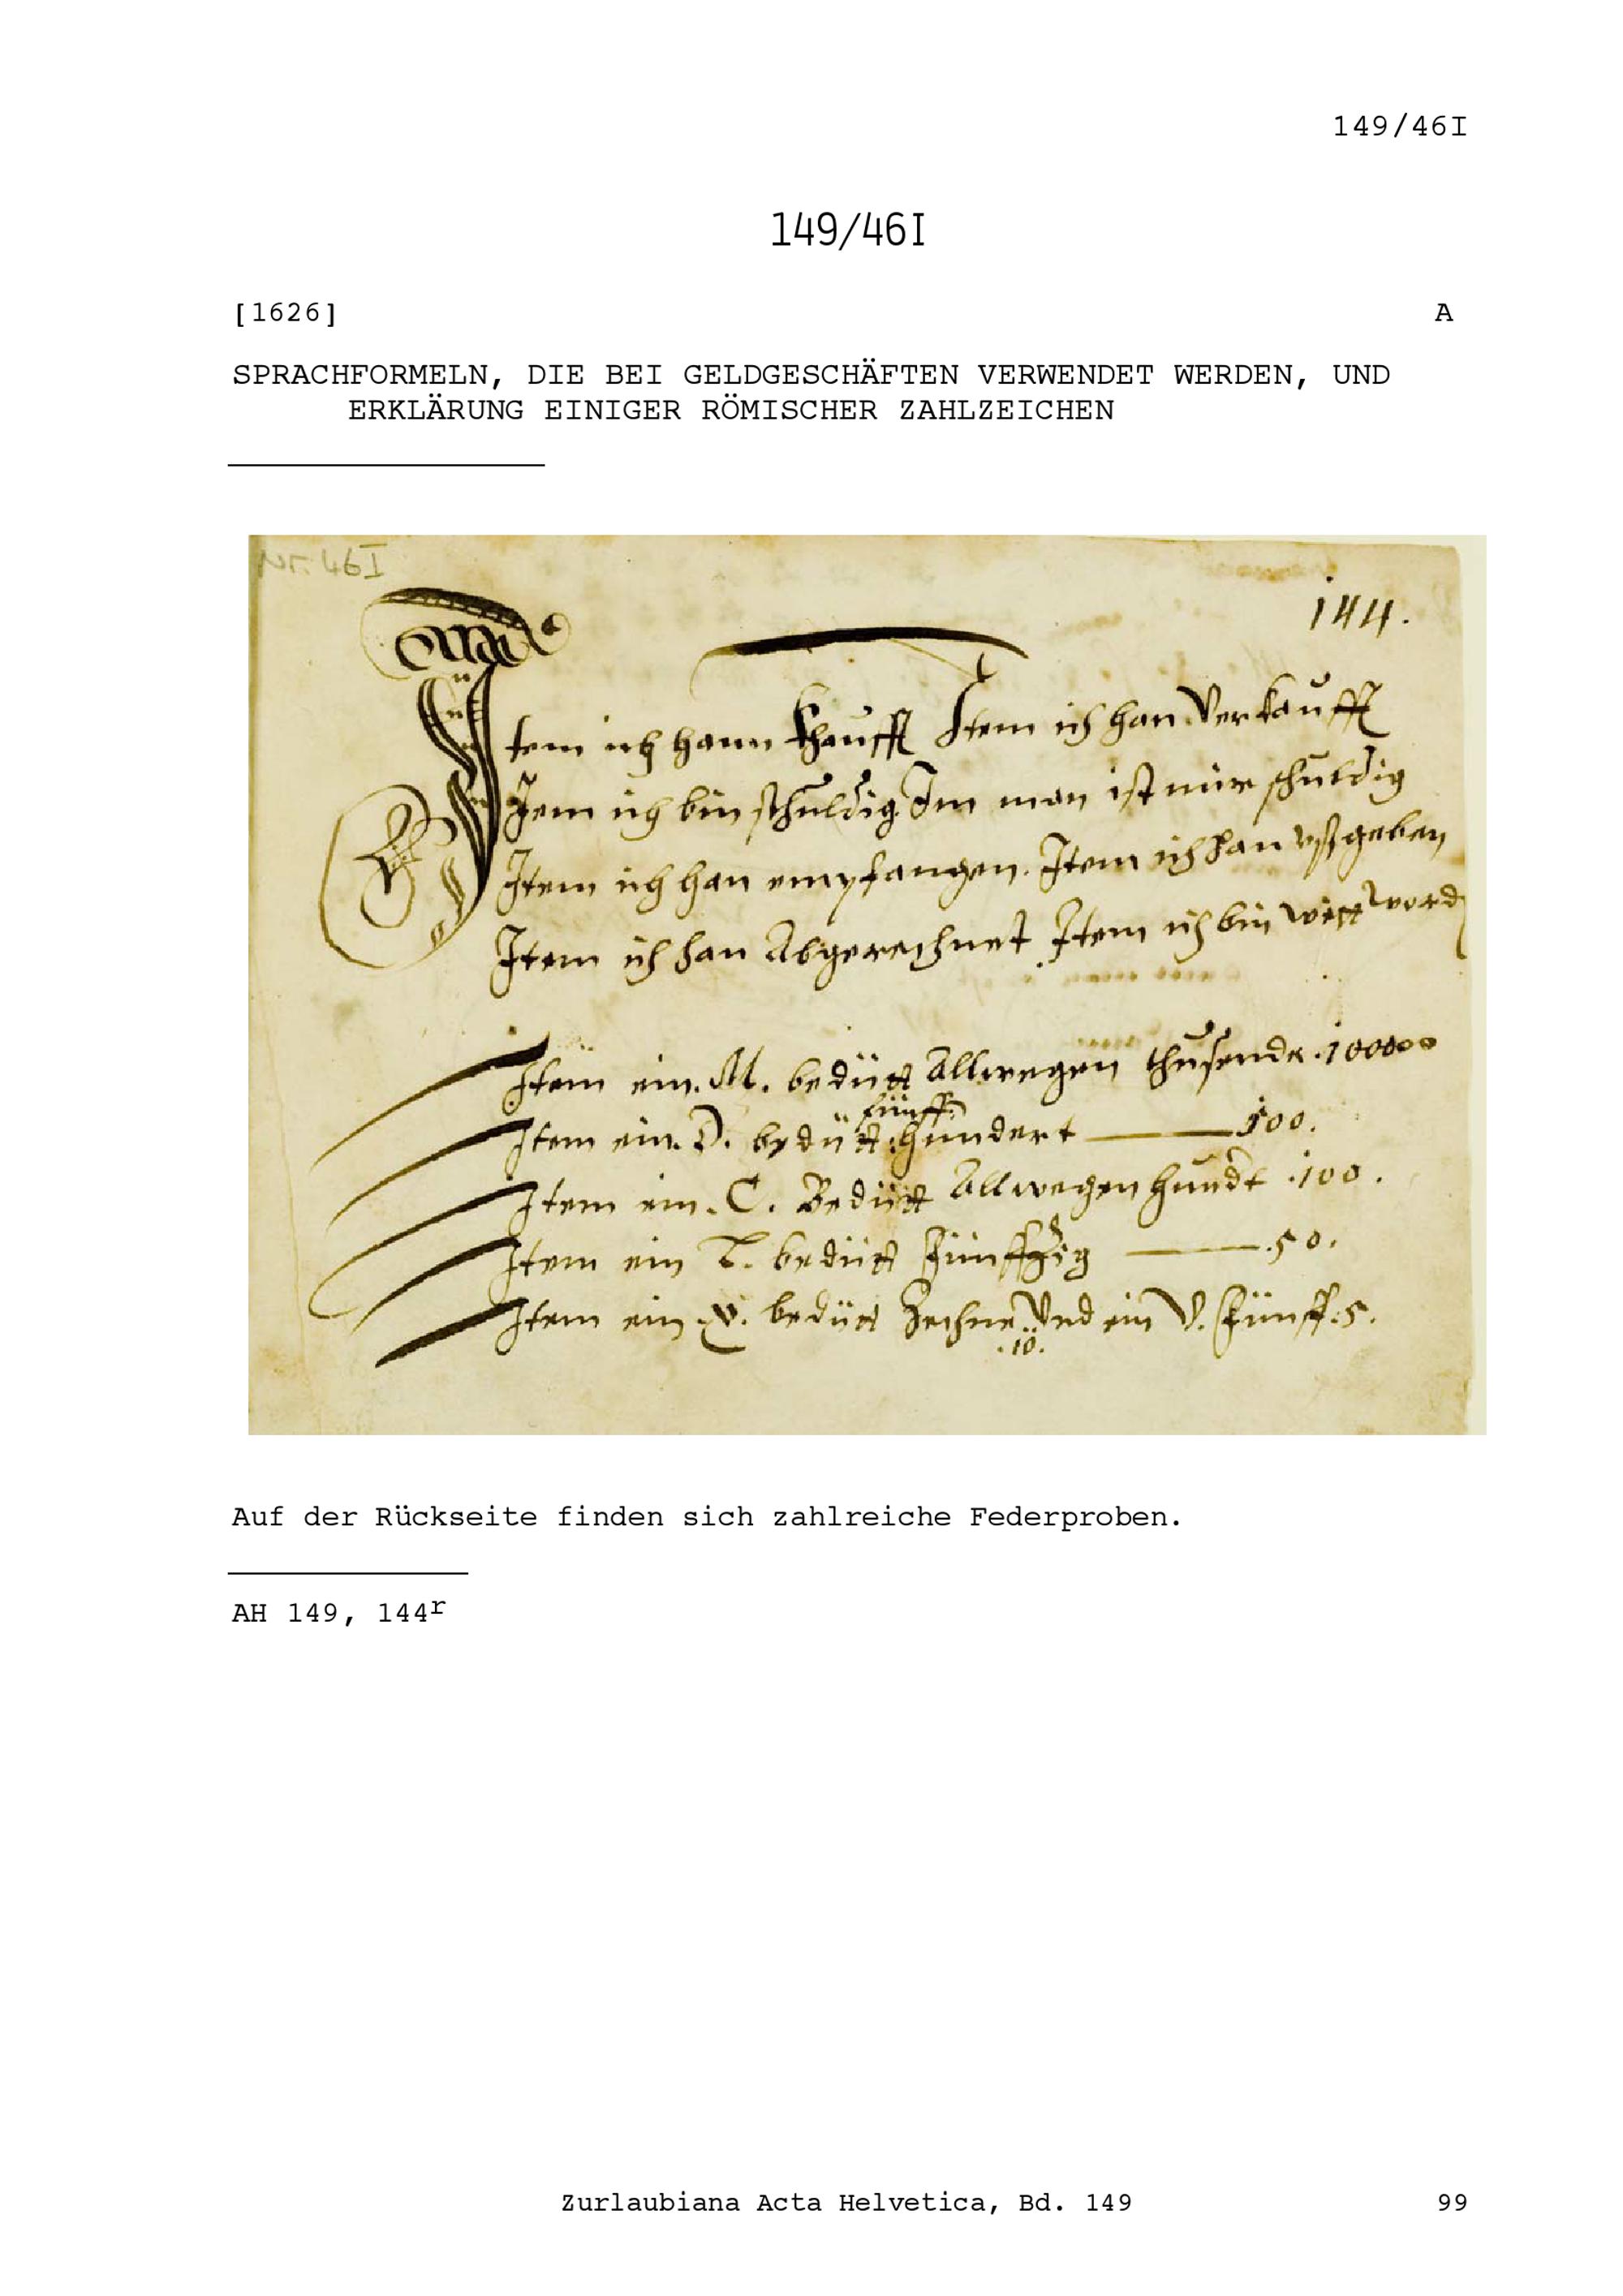 149/46I
149/46I
[1626] A
SPRACHFORMELN, DIE BEI GELDGESCHÄFTEN VERWENDET WERDEN, UND
ERKLÄRUNG EINIGER RÖMISCHER ZAHLZEICHEN
Nr. 46I
144.
Item ich hann khaufft Item ich han Verkaufft
Jem ich bin schuldig Im man ist mir schuldig
Item ich han empfangen. Item ich han vsgeben
Item ich han Abgerechnet Item ich bin wett word
Item ein. M. bedütt Allwegen thusende .100000
fünff
Item ein. D. bedütt hundert 500.
Item ein. C. Bedütt Allwegen hundt .100.
Item ein L. bedütt Fünffzig .50.
Item ein .X. bedütt Zechne Vnd ein V. Fünff: 5.
.10.
Auf der Rückseite finden sich zahlreiche Federproben.
AH 149, 144r
Zurlaubiana Acta Helvetica, Bd. 149 99